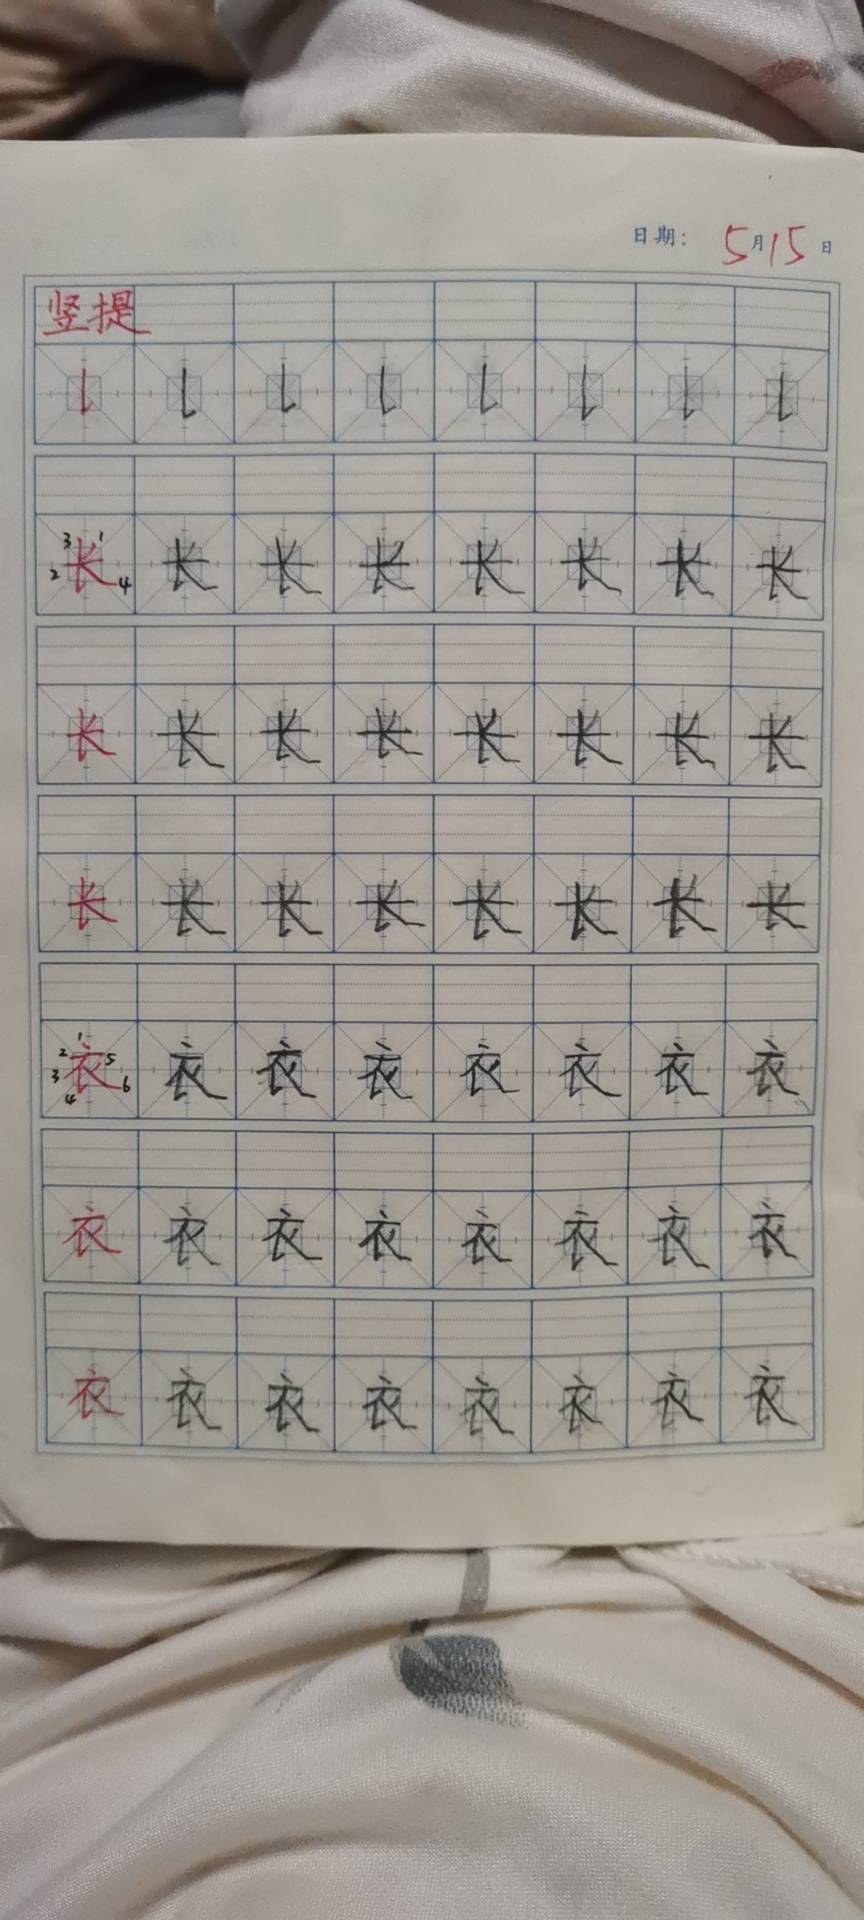 日期： 5月15日
竖提
㇙ ㇙ ㇙ ㇙ ㇙ ㇙ ㇙ ㇙
3 1 2 长 4 长 长 长 长 长 长 长
长 长 长 长 长 长 长 长
长 长 长 长 长 长 长 长
1 2 3 衣 5 4 6 衣 衣 衣 衣 衣 衣 衣
衣 衣 衣 衣 衣 衣 衣 衣
衣 衣 衣 衣 衣 衣 衣 衣